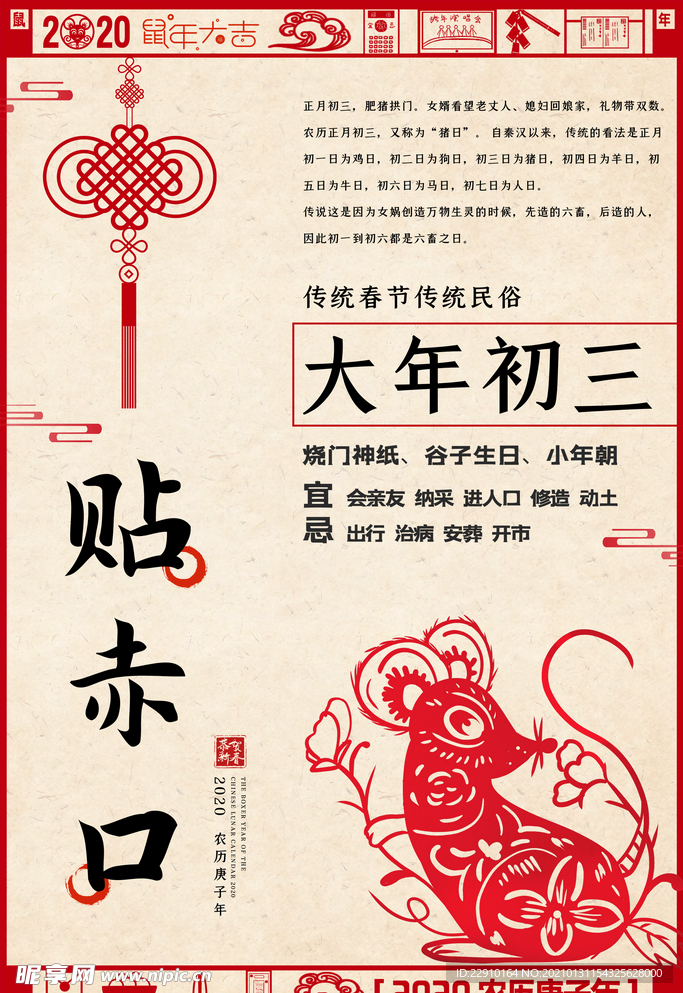 鼠
2020
鼠年大吉
年
正月初三，肥猪拱门。女婿看望老丈人、媳妇回娘家，礼物带双数。
农历正月初三，又称为“猪日”。自秦汉以来，传统的看法是正月
初一日为鸡日，初二日为狗日，初三日为猪日，初四日为羊日，初
五日为牛日，初六日为马日，初七日为人日。
传说这是因为女娲创造万物生灵的时候，先造的六畜，后造的人，
因此初一到初六都是六畜之日。
传统春节传统民俗
大年初三
烧门神纸、谷子生日、小年朝
宜 会亲友 纳采 进人口 修造 动土
忌 出行 治病 安葬 开市
贴赤口
恭贺新春
2020 农历庚子年
THE BOXER YEAR OF THE
CHINESE LUNAR CALENDAR 2020
昵享网 www.nipic.cn
ID:22910164 NO:20210131154325628000
[ 2020 农历庚子年 ]